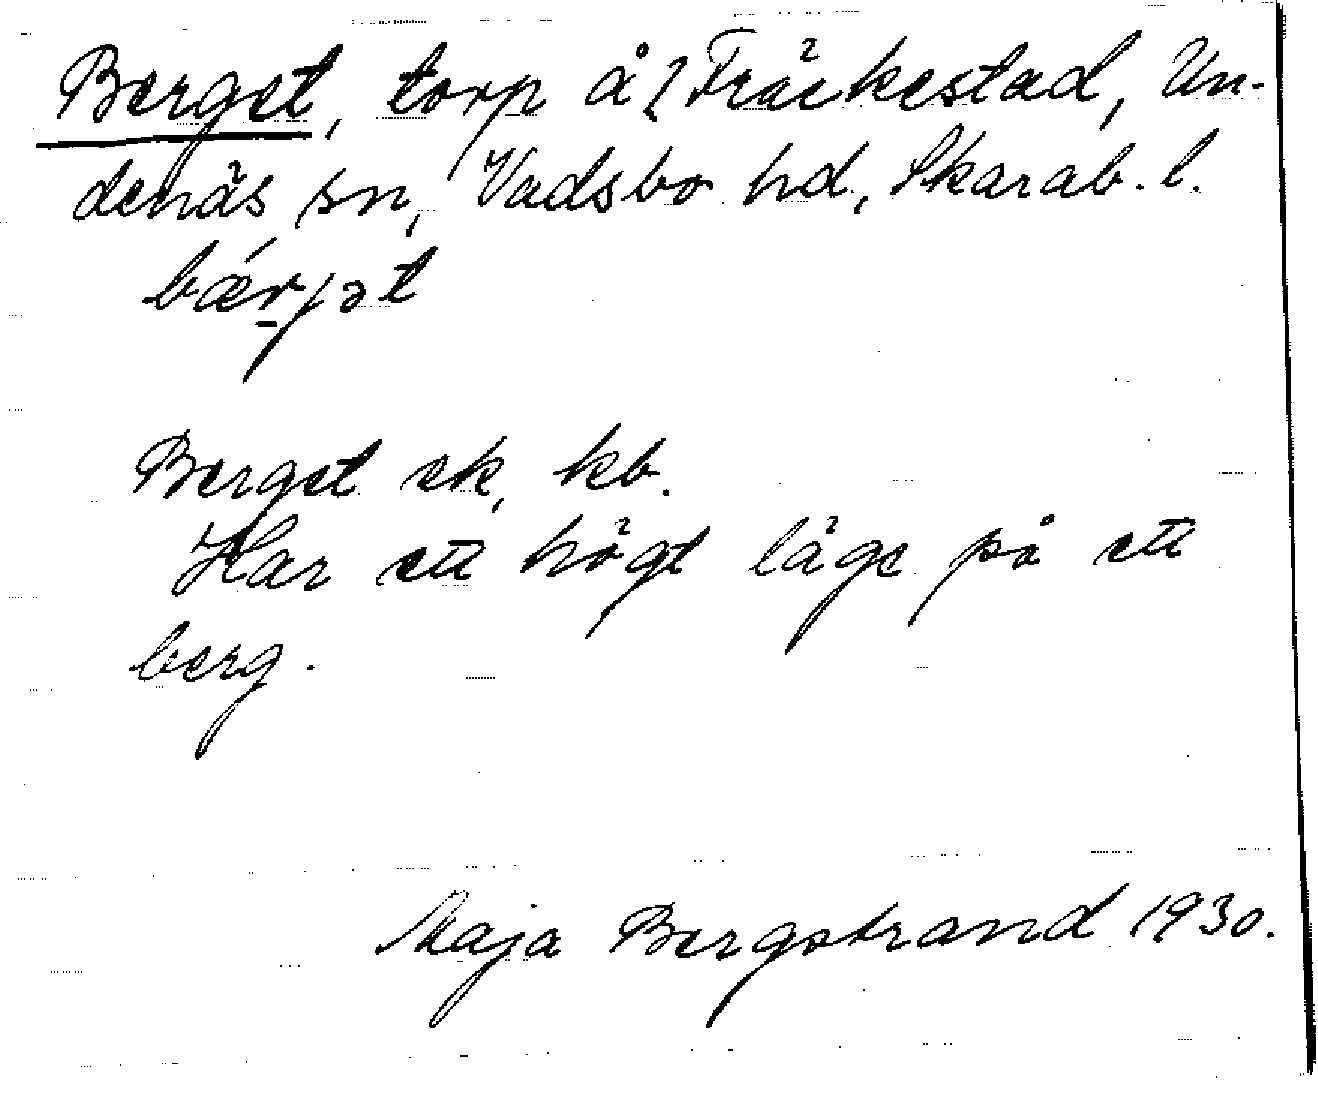 Berget, torp å 2 Fräckestad, Un-
denäs sn, Vadsbo hd, Skarab. l.
bǽrjət
Berget ek, kb.
Har ett högt läge på ett
berg.
Maja Bergstrand 1930.